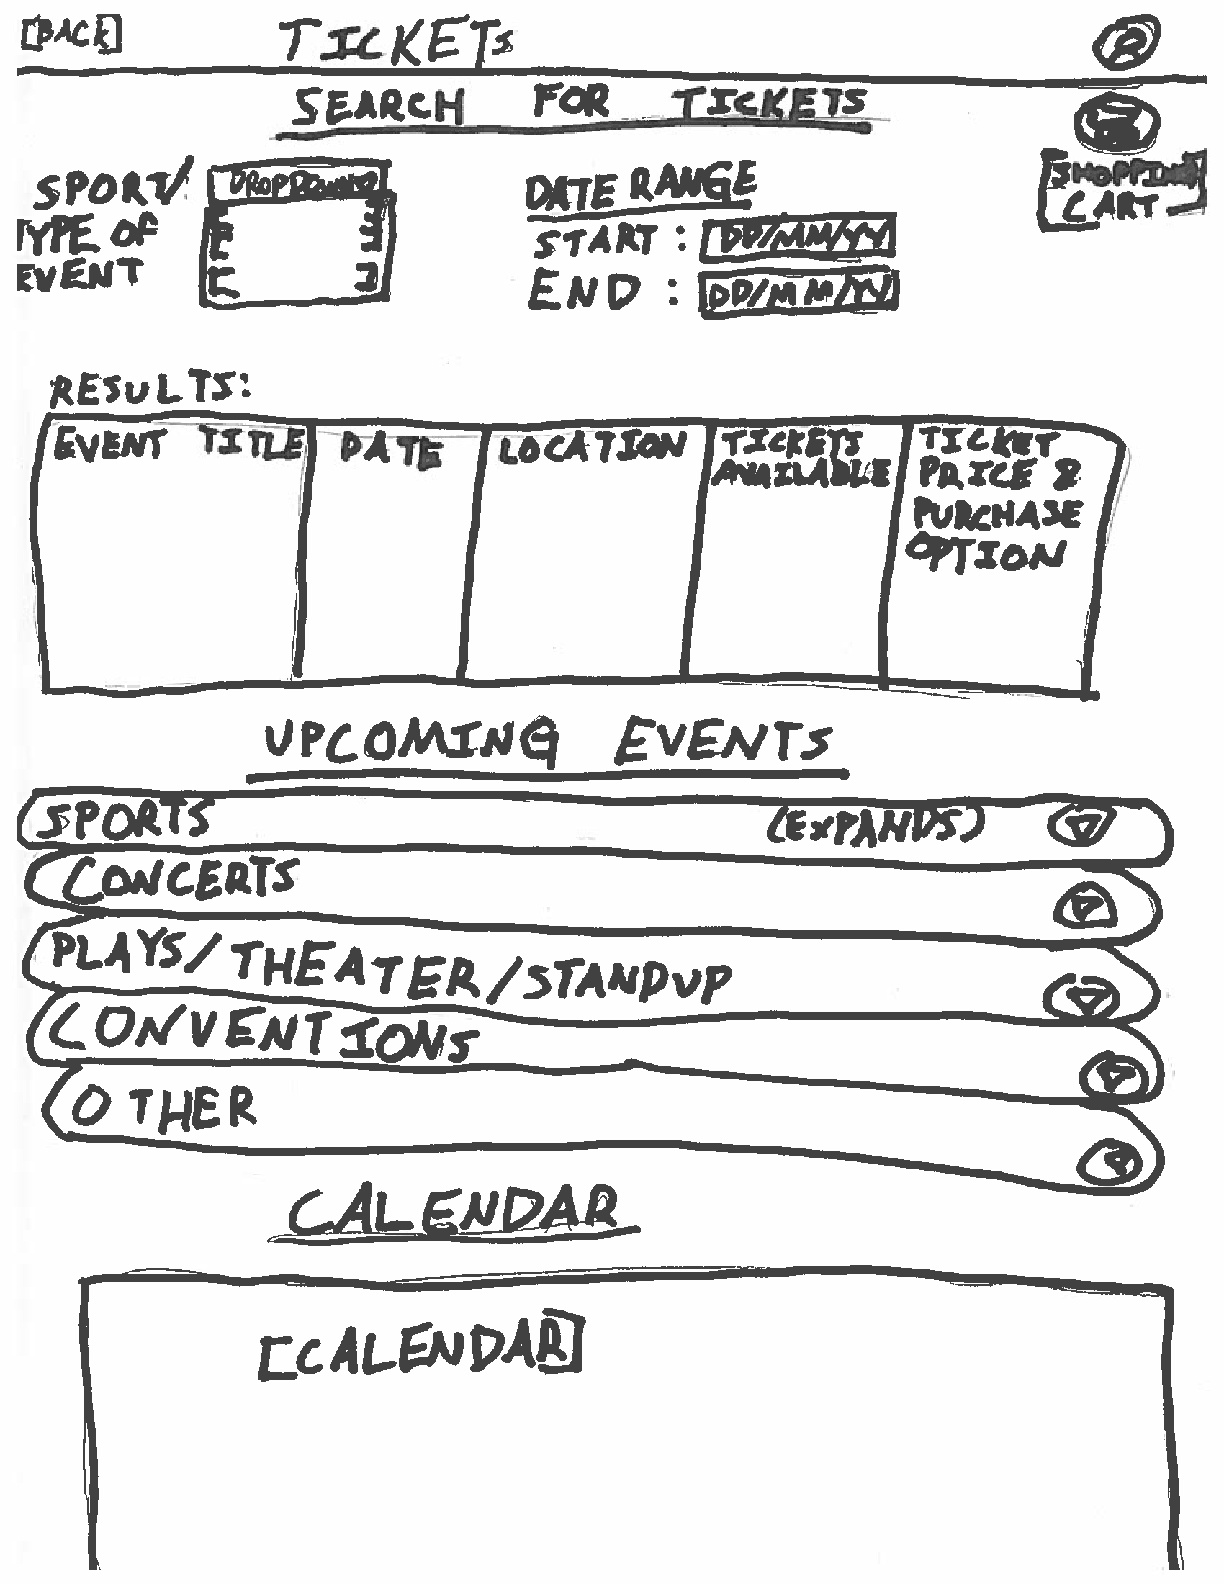 [BACK] TICKETS
SEARCH FOR TICKETS
SHOPPING
CART
SPORT/
TYPE OF
EVENT
DROPDOWN
DATE RANGE
START : DD/MM/YY
END : DD/MM/YY
RESULTS:
EVENT TITLE
DATE
LOCATION
TICKETS
AVAILABLE
TICKET
PRICE &
PURCHASE
OPTION
UPCOMING EVENTS
SPORTS (EXPANDS)
CONCERTS
PLAYS/THEATER/STANDUP
CONVENTIONS
OTHER
CALENDAR
[CALENDAR]